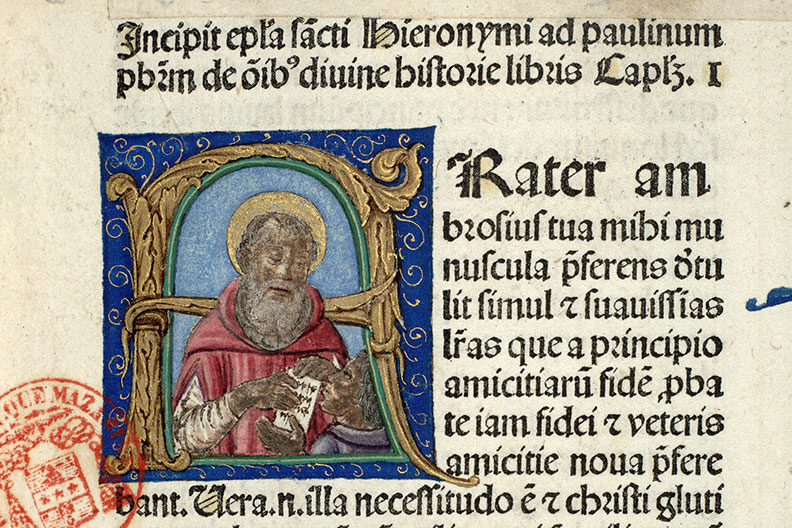 Incipit epl̃a sãcti Hieronymi ad paulinum
pb̃rm de õib⁹ diuine historie libris Capl̃ꝫ. I
Rater am
brosius tua mihi mu
nuscula p̃ferens õtu
lit simul ⁊ suauissĩas
lr̃as que a principio
amicitiarũ fidẽ ꝓba
te iam fidei ⁊ veteris
amicitie noua p̃fere
bant. Uera .n. illa necessitudo ẽ ⁊ christi gluti
QUE MAZA